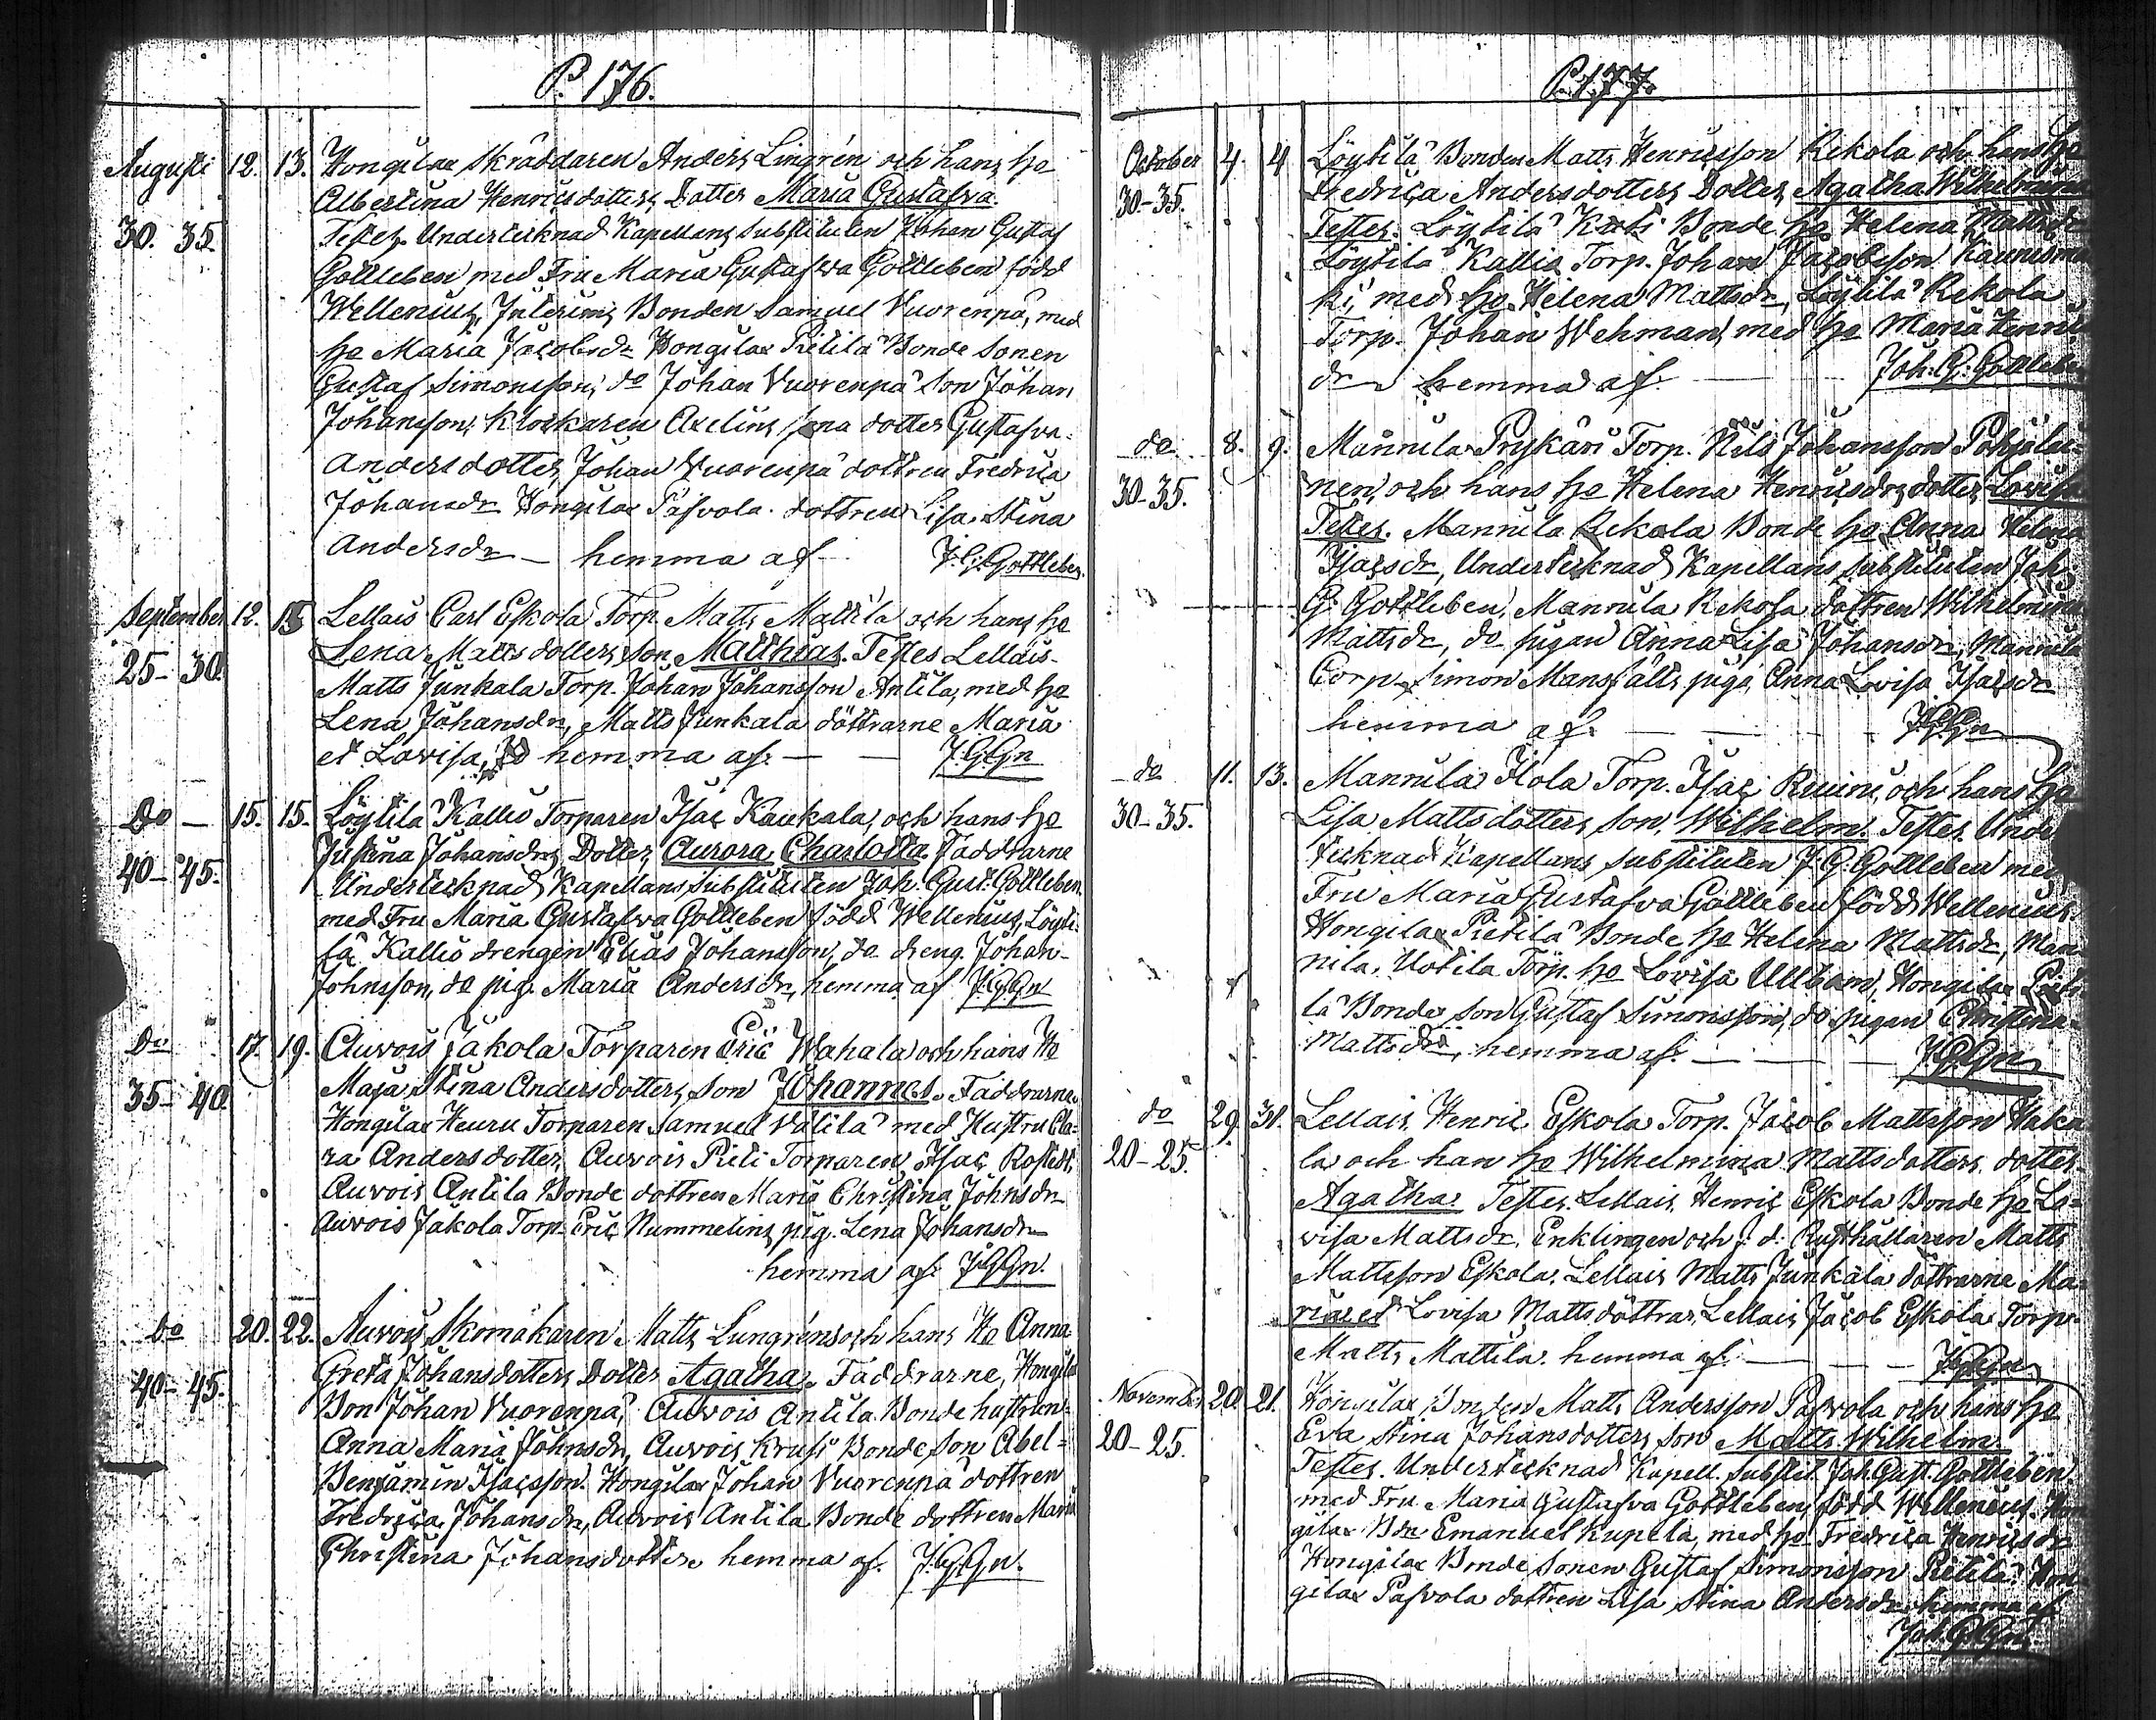 P. 176.
Augusti 12. 13. Hongila Skräddaren Anders Lingrén och hans ho
Albertina Henricsdotters Dotter Maria Gustafva.
30. 35. Testes. Undertecknad Kapellans substituten Johan Gustaf
Gottleben med Fru Maria Gustafva Gottleben född
Wellenius, Interims Bonden Samuel Vuorenpä, med
ho Maria Jacobsdr Hongila Pietilä Bonde Sonen
Gustaf Simonsson, do Johan Vuorenpä Son Johan
Johansson, Klockaren Axelins dotter Gustafva
Andersdotter, Johan Vuorenpä dottren Fredrica
Johansdr Hongila Pasvola dottren Lisa Stina
Andersdr — hemma af J. G. Gottleben.
September 12. 15 Lellais Carl Eskola Torp. Matts Mattila och hans ho
Lena Mattsdotters son Matthias. Testes Lellais
25-30. Matts Junkala Torp. Johan Johansson Antila, med ho
Lena Johansdr, Matts Junkala döttrarne Maria
et Lovisa, hemma af. — J.G.Gn
Do — 15. 15. Löytilä Kallio Torparen Isac Kaukala, och hans ho
Justina Johansdrs Dotter Aurora Charlotta Faddrarne
40-45. Undertecknad Kapellans Substituten Joh. Gust. Gottleben
med Fru Maria Gustafva Gottleben född Wellenius, Löyti-
lä Kallio drengen Elias Johansson, do dreng. Johan
Johnsson, do pig. Maria Andersdr, hemma af J.G.Gn
Do 17. 19. Auvois Jakola Torparen Eric Wahala och hans Ho
Maja Stina Andersdotters son Johannes. Faddrarne
35-40. Hongila Heuru Torparen Samuel Välilä med Hustru Cla-
ra Andersdotter, Auvois Pieti Torparen Isac Rostedt,
Auvois Antila Bonde dottren Maria Christina Johnsdr
Auvois Jakola Torp. Eric Nummelins pig. Lena Johansdr
hemma af J.G.Gn.
Do 20. 22. Auvois Skomakaren Matts Lungréns och hans Ho Anna
Greta Johansdotters Dotter Agatha. Faddrarne, Hongila
40-45. Bon Johan Vuorenpä, Auvois Antila Bonde hustrun
Anna Maria Johnsdr, Auvois Krusi Bonde son Abel
Benjamin Isacsson. Hongila Johan Vuorenpä dottren
Fredrica Johansdr, Auvois Antila Bonde dottren Maria
Christina Johansdotter hemma af. J.G.Gn.
P. 177.
October 4. 4 Löytilä Bonden Matts Henricsson Rekola och hans ho
30-35. Fredrica Andersdotters Dotter Agatha Wilhelmina
Testes. Löytilä Bonde ho Helena Mattsdr
Löytilä Kallio Torp. Johan Jacobsson Kaunismä
ki, med ho Helena Mattsdr, Löytilä Rekola
Torp. Johan Wehman, med ho Maria Henrics
dr hemma af. — Joh. G. Gottleben
do 8. 9. Mannula Prykäri Torp. Nils Johansson Pohjolai-
30-35. nen, och hans ho Helena Henricsdrs dotter Lovisa
Testes. Mannula Rekola Bonde ho Anna Helena
Isacsdr, Undertecknad Kapellans substituten Joh.
G. Gottleben, Mannula Rekola dottren Wilhelmina
Mattsdr, do pigan Anna Lisa Johansdr, Mannula
Corp. Simon Mansfälts piga Anna Lovisa Isacsdr
hemma af. — J.G.Gn
do 11. 13. Mannula Ilola Torp. Isac och hans ho
30-35. Lisa Mattsdotters son, Wilhelm. Testes, Under
tecknad Kapellans substituten J. G. Gottleben med
Fru Maria Gustafva Gottleben född Wellenius.
Hongila Pietilä Bonde ho Helena Mattsdr, Man
nila, Uotila Torp. ho Lovisa Ullbom, Hongila Pieti
lä Bonde son Gustaf Simonsson, do pigan Christina
Mattsdr, hemma af. — J.G.Gn
do 29. 31. Lellais Henric Eskola Torp. Jacob Mattsson Haka
20-25. la och han ho Wilhelmina Mattsdotters dotter
Agatha. Testes. Lellais Henric Eskola Bonde ho Lo-
visa Mattsdr. Enklingen och f. d. Rusthållaren Matts
Mattsson Eskola. Lellais Matts Junkala döttrarne Ma-
ria et Lovisa Mattsdöttrar, Lellais Jacob Eskola Torp.
Matts Mattila. hemma af. — J.G.Gn
November 20. 21. Bonden Matts Andersson Pasvola och hans ho
20-25. Eva Stina Johansdotters son Matts Wilhelm.
Testes. Undertecknad Kapell. Substit. Joh. Gust. Gottleben
med Fru Maria Gustafva Gottleben, född Wellenius. Hon
gila Bde Emanuel Kupela, med ho Fredrica Henricsdr
Hongila Bonde Sonen Gustaf Simonsson Pietilä, Hon
gila Pasvola dottren Lisa Stina Andersdr. hemma af
Joh. G. Gn